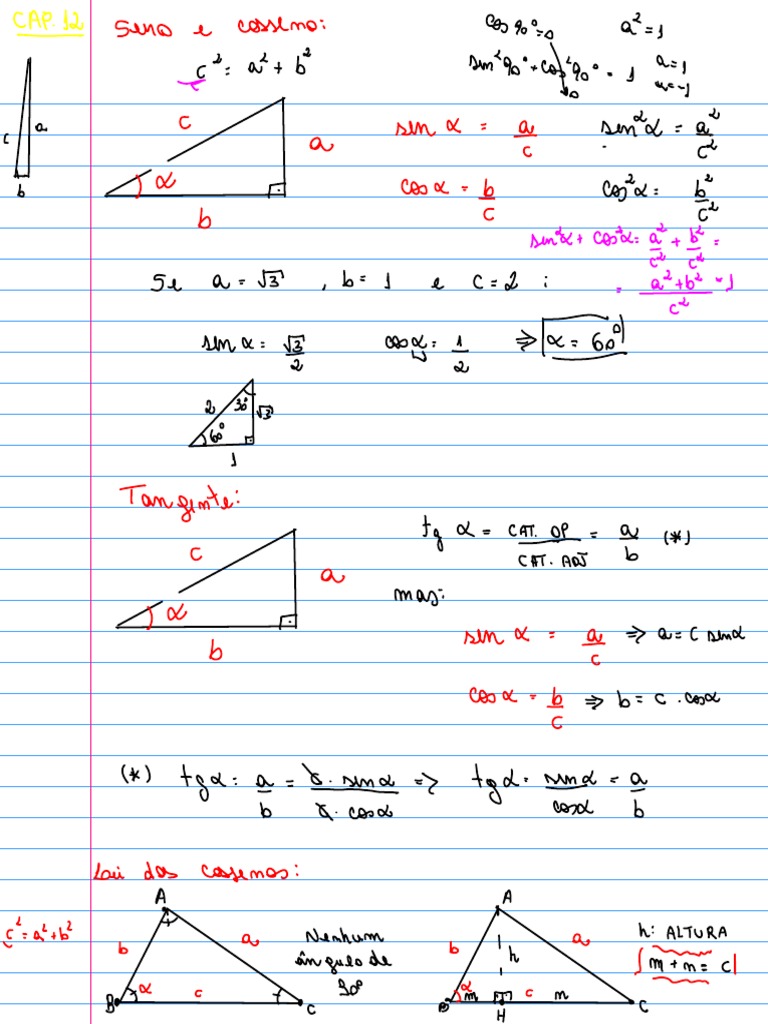 CAP. 12
Seno e cosseno:
c² = a² + b²
cos 90° = 0
a² = 1
sen² 90° + cos² 90° = 1
0
a = 1
a = -1
c
a
b
c
a
α
b
sen α = a/c
sen² α = a²/c²
cos α = b/c
cos² α = b²/c²
sen² α + cos² α = a²/c² + b²/c² =
= (a² + b²)/c² = 1
Se a = √3 , b = 1 e c = 2 :
sen α = √3/2 cos α = 1/2 ⇒ α = 60°
2
30°
√3
60°
1
Tangente:
c
a
α
b
tg α = CAT. OP/CAT. ADJ = a/b (*)
mas:
sen α = a/c ⇒ a = c senα
cos α = b/c ⇒ b = c . cosα
(*) tg α = a/b = c . senα/c . cosα ⇒ tg α = senα/cosα = a/b
Lei dos cossenos:
c² = a² + b²
A
b
a
α
c
B
C
Nenhum
ângulo de
90°
A
b
a
h
α
m
c
n
B
H
C
h: ALTURA
m + n = c